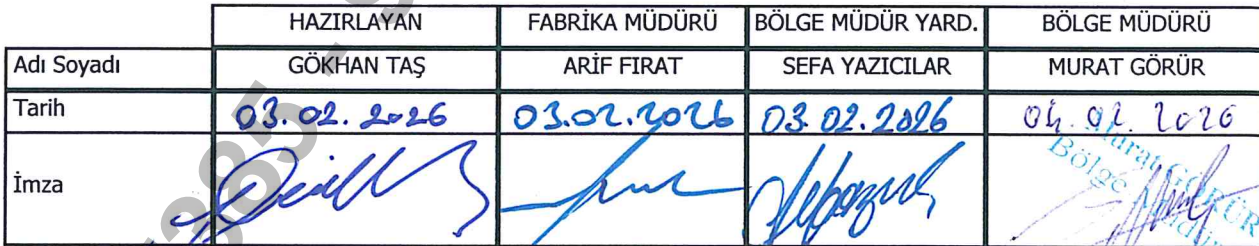 HAZIRLAYAN FABRİKA MÜDÜRÜ BÖLGE MÜDÜR YARD. BÖLGE MÜDÜRÜ
Adı Soyadı GÖKHAN TAŞ ARİF FIRAT SEFA YAZICILAR MURAT GÖRÜR
Tarih 03.02.2026 03.02.2026 03.02.2026 04.02.2026
İmza
Murat GÖRÜR
Bölge Müdürü